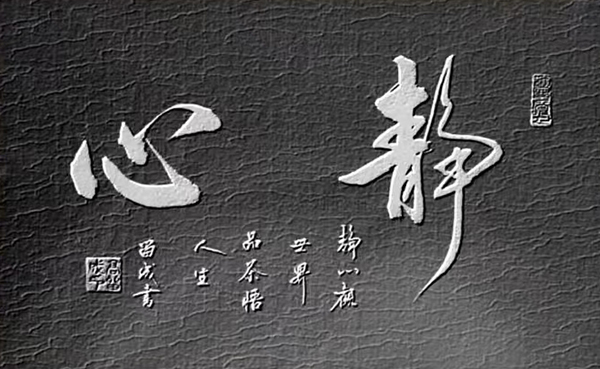 静心
静心观
世界
品茶悟
人生
留成書